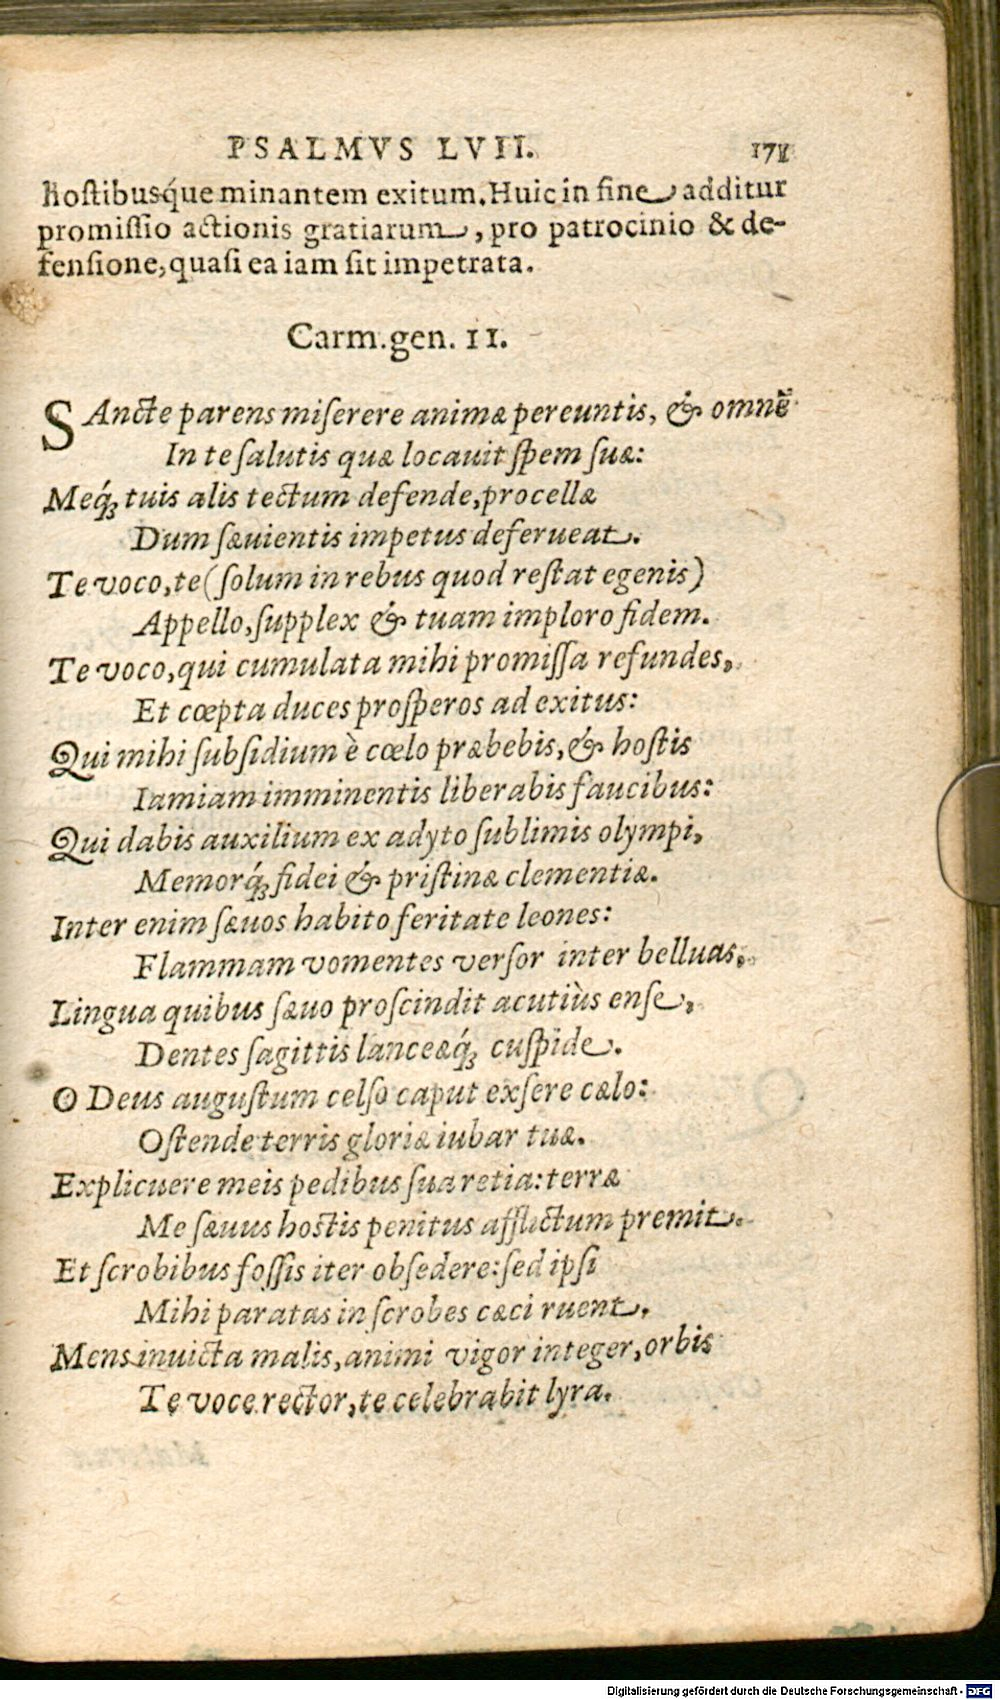 PSALMVS LVII. 171
hostibusq́ue minantem exitum. Huic in fine additur
promissio actionis gratiarum, pro patrocinio & de-
fensione, quasi ea iam sit impetrata.
Carm. gen. 11.
SAncte parens miserere animæ pereuntis, & omnẽ
In te salutis quæ locauit spem suæ:
Meq́; tuis alis tectum defende, procellæ
Dum sæuientis impetus deferueat.
Te voco, te (solum in rebus quod restat egenis)
Appello, supplex & tuam imploro fidem.
Te voco, qui cumulata mihi promissa refundes,
Et cœpta duces prosperos ad exitus:
Qui mihi subsidium è cœlo præbebis, & hostis
Iamiam imminentis liberabis faucibus:
Qui dabis auxilium ex adyto sublimis olympi,
Memorq́; fidei & pristinæ clementiæ.
Inter enim sæuos habito feritate leones:
Flammam vomentes versor inter belluas,
Lingua quibus sæuo proscindit acutiùs ense,
Dentes sagittis lanceæq́; cuspide.
O Deus augustum celso caput exsere cælo:
Ostende terris gloriæ iubar tuæ.
Explicuere meis pedibus sua retia: terræ
Me sæuus hostis penitus afflictum premit.
Et scrobibus fossis iter obsedere: sed ipsi
Mihi paratas in scrobes cæci ruent.
Mens inuicta malis, animi vigor integer, orbis
Te voce rector, te celebrabit lyra.
Digitalisierung gefördert durch die Deutsche Forschungsgemeinschaft - DFG